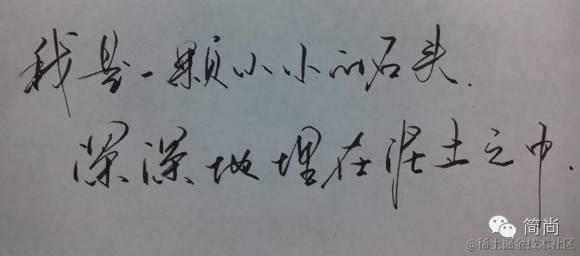 我是一颗小小的石头.
深深地埋在泥土之中.
简尚
@稀土掘金技术社区